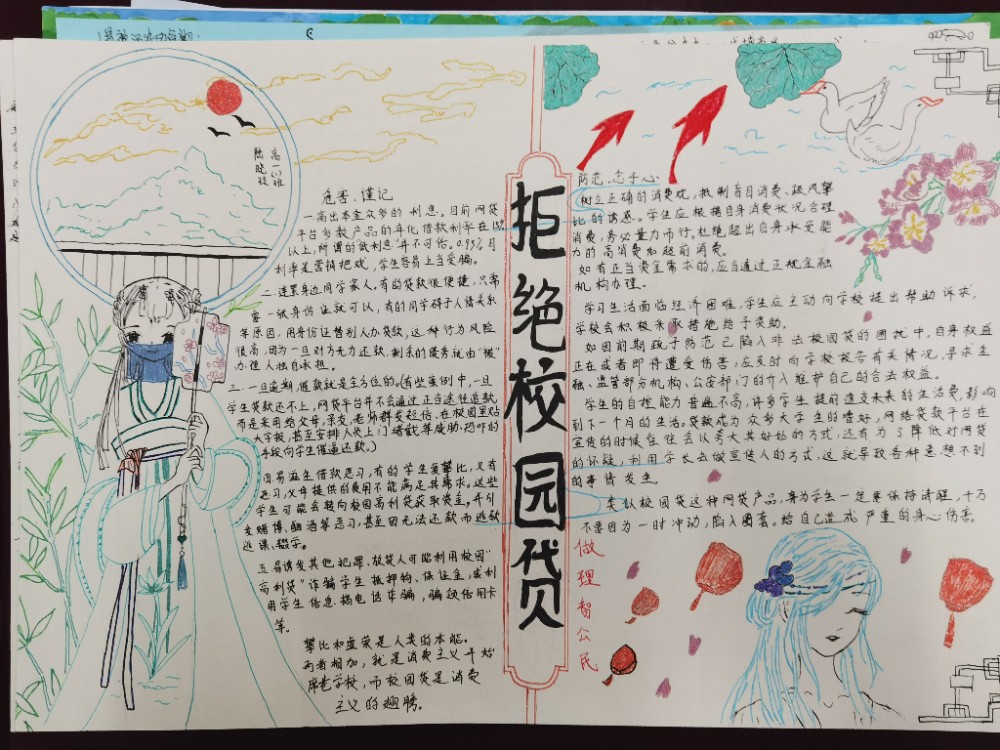 高一(1)班
陆晓枝
危害、谨记
一.高出本金众多的利息。目前网贷
平台多数产品的年化借款利率在15%
以上,所谓的低利息并不可信。0.99%月
利率是营销把戏,学生容易上当受骗。
二.连累身边同学家人。有的贷款很便捷,只需
要一张身份证就可以,有的同学碍于人情关系
等原因,用身份证替别人办贷款,这种行为风险
很高,因为一旦对方无力还款,剩余的债务就由“被”
办理人独自承担。
三.一旦逾期,催款就是全方位的。(有些案例中,一旦
学生贷款还不上,网贷平台并不会通过正当途径追款,
而是采用给父母,亲友,老师群发短信,在校园里贴
大字报,甚至安排人员上门堵截等威胁、恐吓的
手段向学生催逼还款。)
四.易滋生借款恶习,有的学生爱攀比,又有
恶习,父母提供的费用不能满足其需求。这些
学生可能会转向校园高利贷获取资金,并引
发赌博、酗酒等恶习,甚至因无法还款而逃款
逃课、辍学。
五.易诱发其他犯罪。放贷人可能利用校园“
高利贷”诈骗学生抵押物、保证金,或利
用学生信息搞电话诈骗,骗领信用卡
等。
攀比和虚荣是人类的本能。
两者相加,就是消费主义开始
席卷学校,而校园贷是消费
主义的翅膀。
拒绝校园贷
做理智公民
防范、忘于心
树立正确的消费观,抵制盲目消费、极风攀
比的诱惑。学生应根据自身消费状况合理
消费,务必量力而行。杜绝超出自身承受能
力的高消费和超前消费。
如有正当资金需求的,应当通过正规金融
机构办理。
学习生活面临经济困难,学生应主动向学校提出帮助诉求,
学校会积极采取措施给予资助。
如因前期疏于防范已陷入非法校园贷的困扰中,自身权益
正在或者即将遭受伤害,应及时向学校报告有关情况,寻求金
融、监管部分机构、公安部门的介入维护自己的合法权益。
学生的自控能力普遍不高,许多学生提前透支未来的生活费,影响
到下一个月的生活。贷款成为众多大学生的嗜好,网络贷款平台在
宣传的时候往往会以夸大其好处的方式,还有为了降低对网贷
的怀疑,利用学长去做宣传人的方式,这就导致各种意想不到
的事情发生。
类似校园贷这种网贷产品,身为学生一定要保持清醒,千万
不要因为一时冲动,陷入圈套。给自己造成严重的身心伤害。